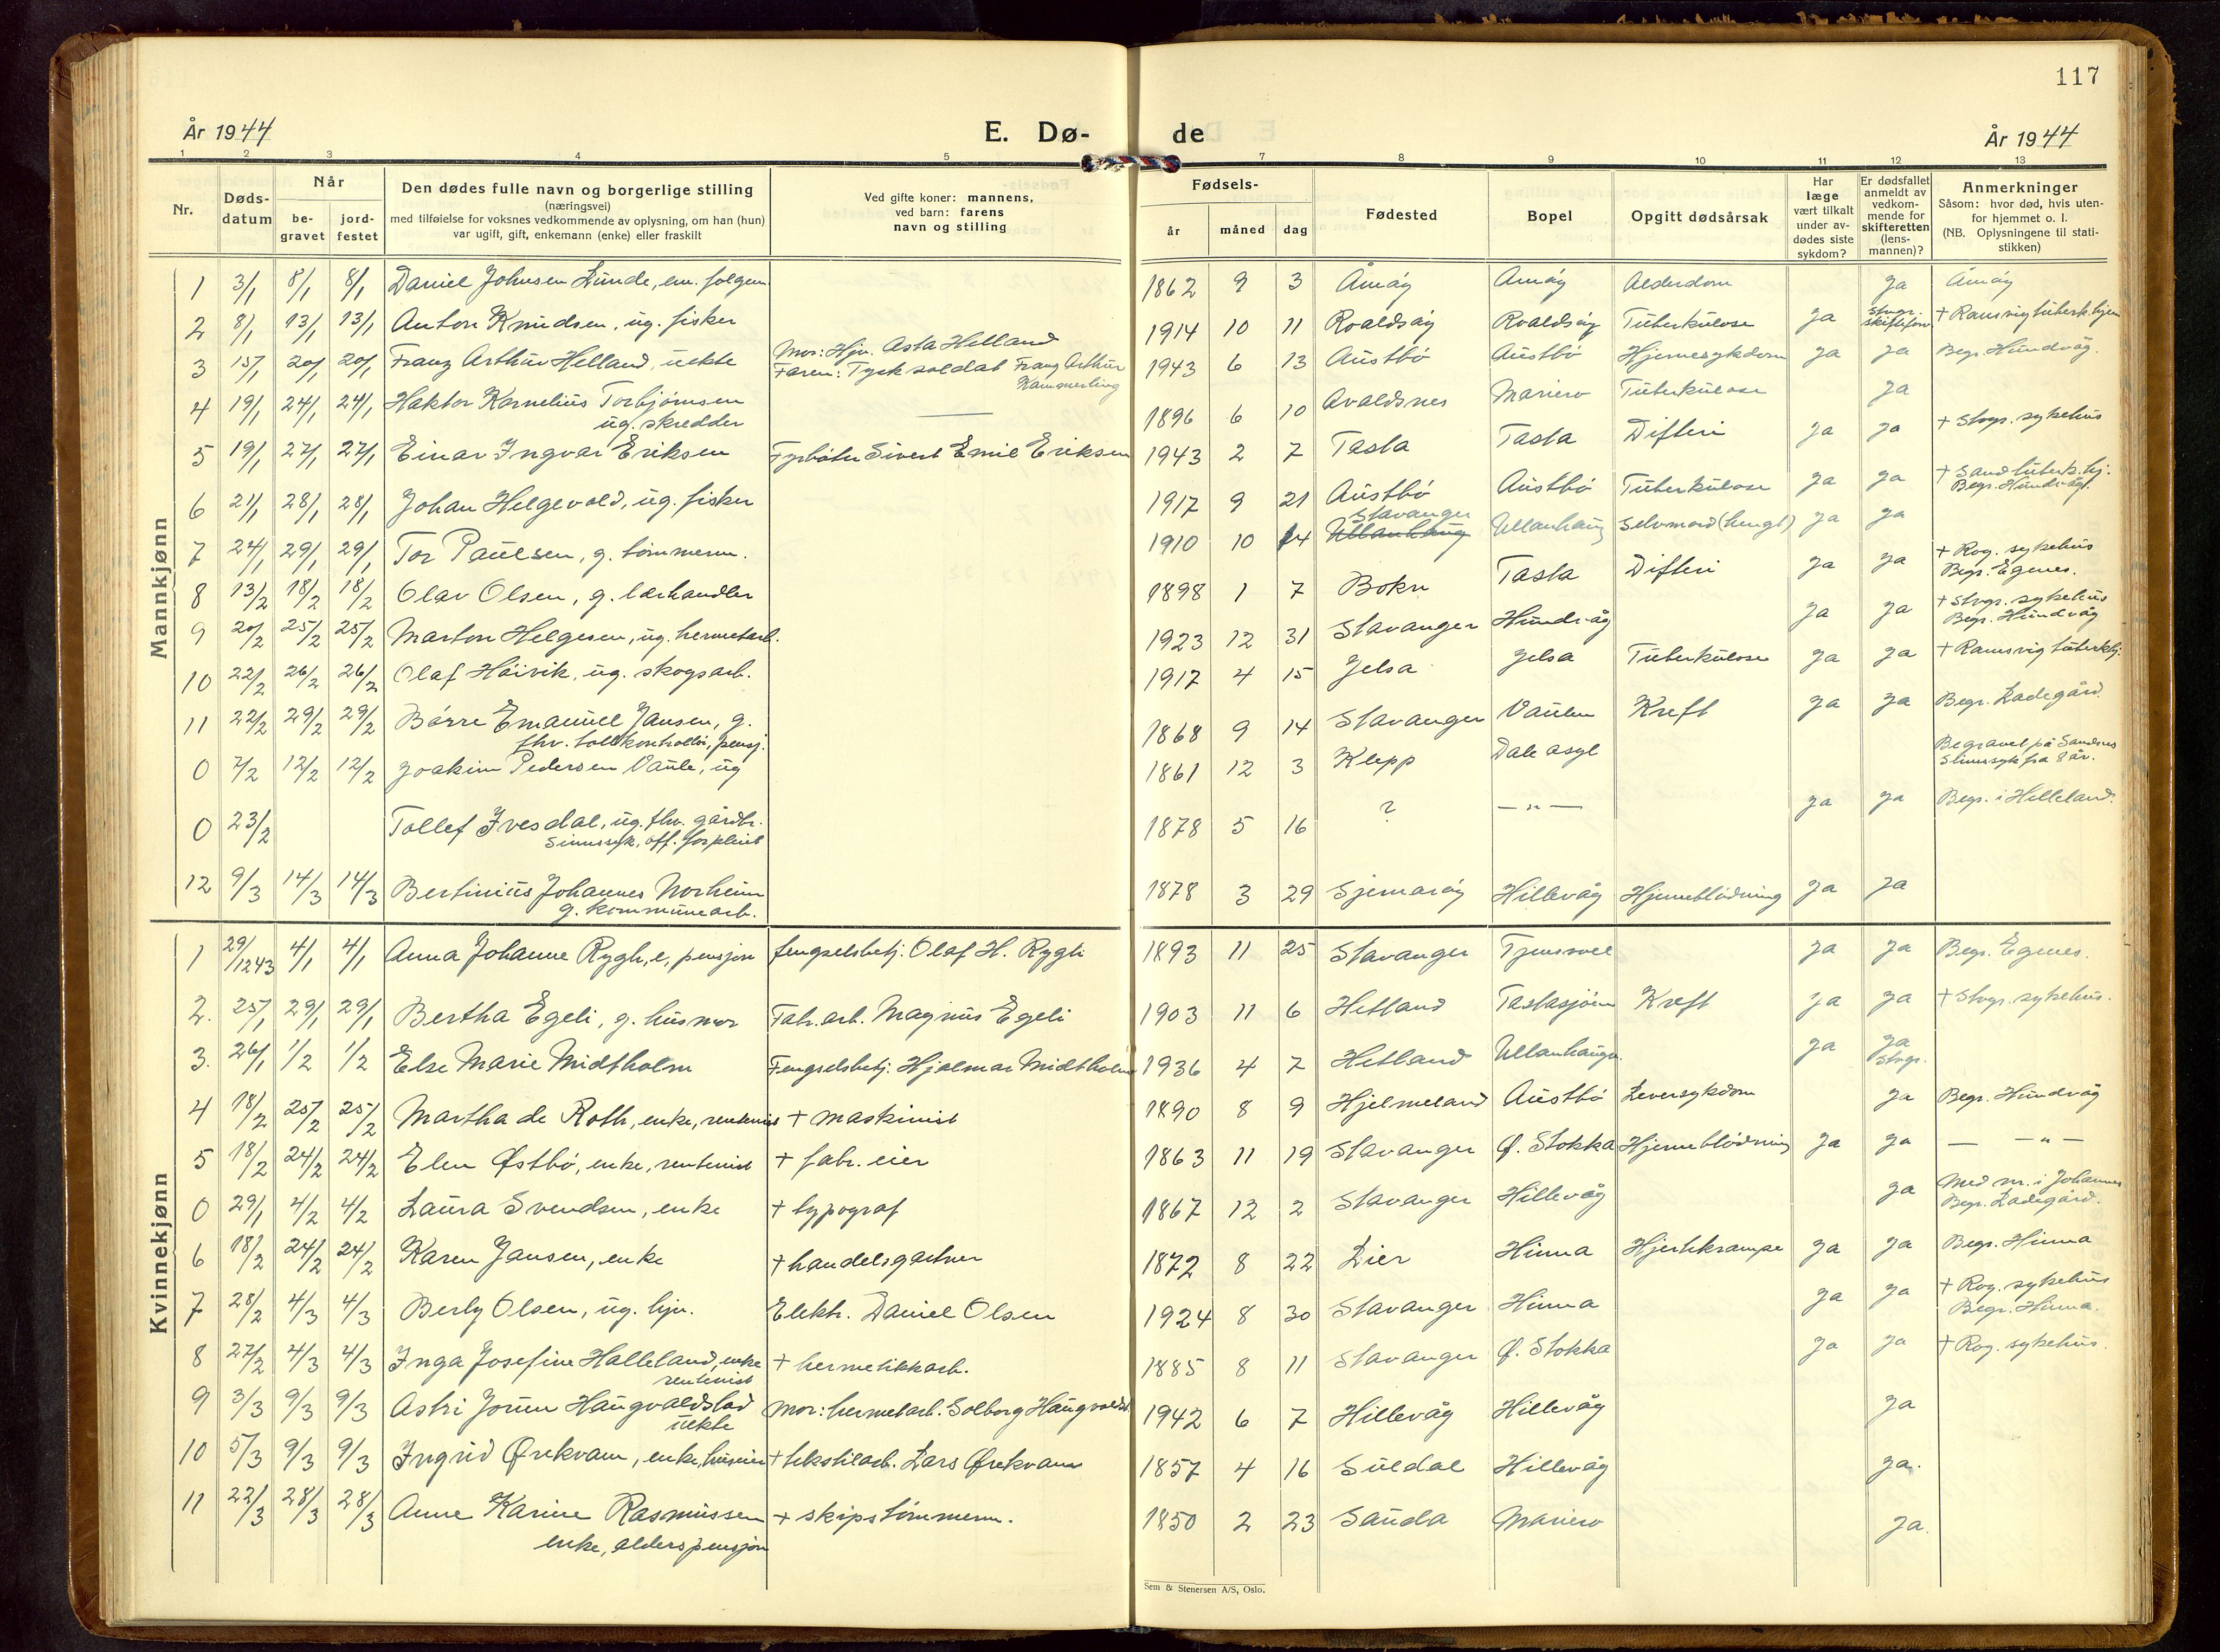 117
År 1944
E. Dø-
de
År 1944
1 2 3 4 5 7 8 9 10 11 12 13
Nr.
Døds-
datum
Når
be-
gravet
jord-
festet
Den dødes fulle navn og borgerlige stilling
(næringsvei)
med tilføielse for voksnes vedkommende av oplysning, om han (hun)
var ugift, gift, enkemann (enke) eller fraskilt
Ved gifte koner: mannens,
ved barn: farens
navn og stilling
Fødsels-
år måned dag
Fødested
Bopel
Opgitt dødsårsak
Har
læge
vært tilkalt
under av-
dødes siste
sykdom?
Er dødsfallet
anmeldt av
vedkom-
mende for
skifteretten
(lens-
mannen)?
Anmerkninger
Såsom: hvor død, hvis uten-
for hjemmet o. l.
(NB. Oplysningene til stati-
stikken)
Mannkjønn
1 3/1 8/1 8/1 Daniel Johnsen Lunde, em. 1862 9 3 Åmøy Åmøy Alderdom ja Åmøy
2 8/1 13/1 13/1 Anton Knudsen, ug. fisker 1914 10 11 Roaldsøy Roaldsøy Tuberkulose ja Stvgr. + Ramsvig tuberk.hjem
3 15/1 20/1 20/1 Franz Arthur Helland, uekte Mor: Hjv. Asta Helland
Faren: Tysk soldat Franz Arthur
Kammerling 1943 6 13 Austbø Austbø Hjernesykdom ja ja Begr. Hundvåg.
4 19/1 24/1 24/1 Haktor Kornelius Torbjørnsen
ug. skredder 1896 6 10 Avaldsnes Mariero Tuberkulose ja
5 19/1 27/1 27/1 Einar Ingvar Eriksen Fyrbøter Sivert Emil Eriksen 1943 2 7 Tasta Tasta Difteri ja ja + Stvgr. sykehus
6 21/1 28/1 28/1 Johan Helgevold, ug. fisker 1917 9 21 Austbø Austbø Tuberkulose ja ja + Sand tuberk.hj.
Begr. Hundvåg.
7 24/1 29/1 29/1 Tor Paulsen, g. tømmerm. 1910 10 14 Stavanger
Ullanhaug Ullanhaug Selvmord (hengt) ja ja
8 13/2 18/2 18/2 Olav Olsen, g. lærhandler 1898 1 7 Bokn Tasta Difteri ja ja + Rog. sykehus
Begr. Egenes.
9 20/2 25/2 25/2 Marton Helgesen, ug. hermetarb. 1923 12 31 Stavanger Hundvåg ja ja + Stvgr. sykehus
Begr. Hundvåg
10 22/2 26/2 26/2 Olaf Høivik, ug. skogsarb. 1917 4 15 Jelsa Jelsa Tuberkulose ja ja + Ramsvig tuberkhj.
11 22/2 29/2 29/2 Børre Emanuel Jansen, g.
fhv. tollkontrollør, pensj. 1868 9 14 Stavanger Vaulen Kreft ja ja Begr. Ladegård.
0 7/2 12/2 12/2 Joakim Pedersen Vaule, ug 1861 12 3 Klepp Dale asyl Begravet på Sandnes
Sinnssyk fra 8 år.
0 23/2 Tollef Ivesdal, ug. fhv. gårdbr.
Sinnssyk, off. forpleiet 1878 5 16 ? — " — ja ja Begr. i Helleland.
12 9/3 14/3 14/3 Bertinius Johannes Norheim
g. kommunearb. 1878 3 29 Sjernarøy Hillevåg Hjerneblødning ja ja
Kvinnekjønn
1 29/12 43 4/1 4/1 Anna Johanne Rygh, e, pensjon fengselsbetj. Olaf H. Rygh 1893 11 25 Stavanger Tjensvoll ja ja Begr. Egenes.
2. 25/1 29/1 29/1 Bertha Egeli, g. husmor Fabr.arb. Magnus Egeli 1903 11 6 Hetland Tastasjøen Kreft ja ja + Stvgr. sykehus.
3. 26/1 1/2 1/2 Else Marie Midtholm Fengselsbetj. Hjalmar Midtholm 1936 4 7 Hetland Ullanhaug ja ja
Stvgr.
4 18/2 25/2 25/2 Martha de Roth, enke, rentenist + maskinist 1890 8 9 Hjelmeland Austbø Leversykdom ja Begr. Hundvåg
5 18/2 24/2 24/2 Elen Østbø, enke, rentenist + fabr. eier 1863 11 19 Stavanger Ø. Stokka Hjerneblødning ja ja — — " —
0 29/1 4/2 4/2 Laura Svendsen, enke + typograf 1867 12 2 Stavanger Hillevåg ja Med nr. i Johannes
Begr. Ladegård.
6 18/2 24/2 24/2 Karen Jansen, enke + handelsgartner 1872 8 22 Lier Hinna Hjertekrampe ja ja Begr. Hinna
7 28/2 4/3 4/3 Berly Olsen, ug. hjv. Elektr. Daniel Olsen 1924 8 30 Stavanger Hinna ja ja + Rog. sykehus
Begr. Hinna.
8 27/2 4/3 4/3 Inga Josefine Halleland, enke
rentenist + hermetikkarb. 1885 8 11 Stavanger Ø. Stokka ja ja + Rog. sykehus.
9 3/3 9/3 9/3 Astri Jorun Haugvaldstad
uekte Mor: hermetarb. Solborg Haugvaldst. 1942 6 7 Hillevåg Hillevåg ja
10 5/3 9/3 9/3 Ingrid Ørekvam, enke, huseier + tekstilarb. Lars Ørekvam 1857 4 16 Suldal Hillevåg ja.
11 22/3 28/3 28/3 Anne Karine Rasmussen
enke, alderspensjon + skipstømmerm. 1850 2 23 Sauda Mariero ja.
Sem & Stenersen A/S, Oslo.